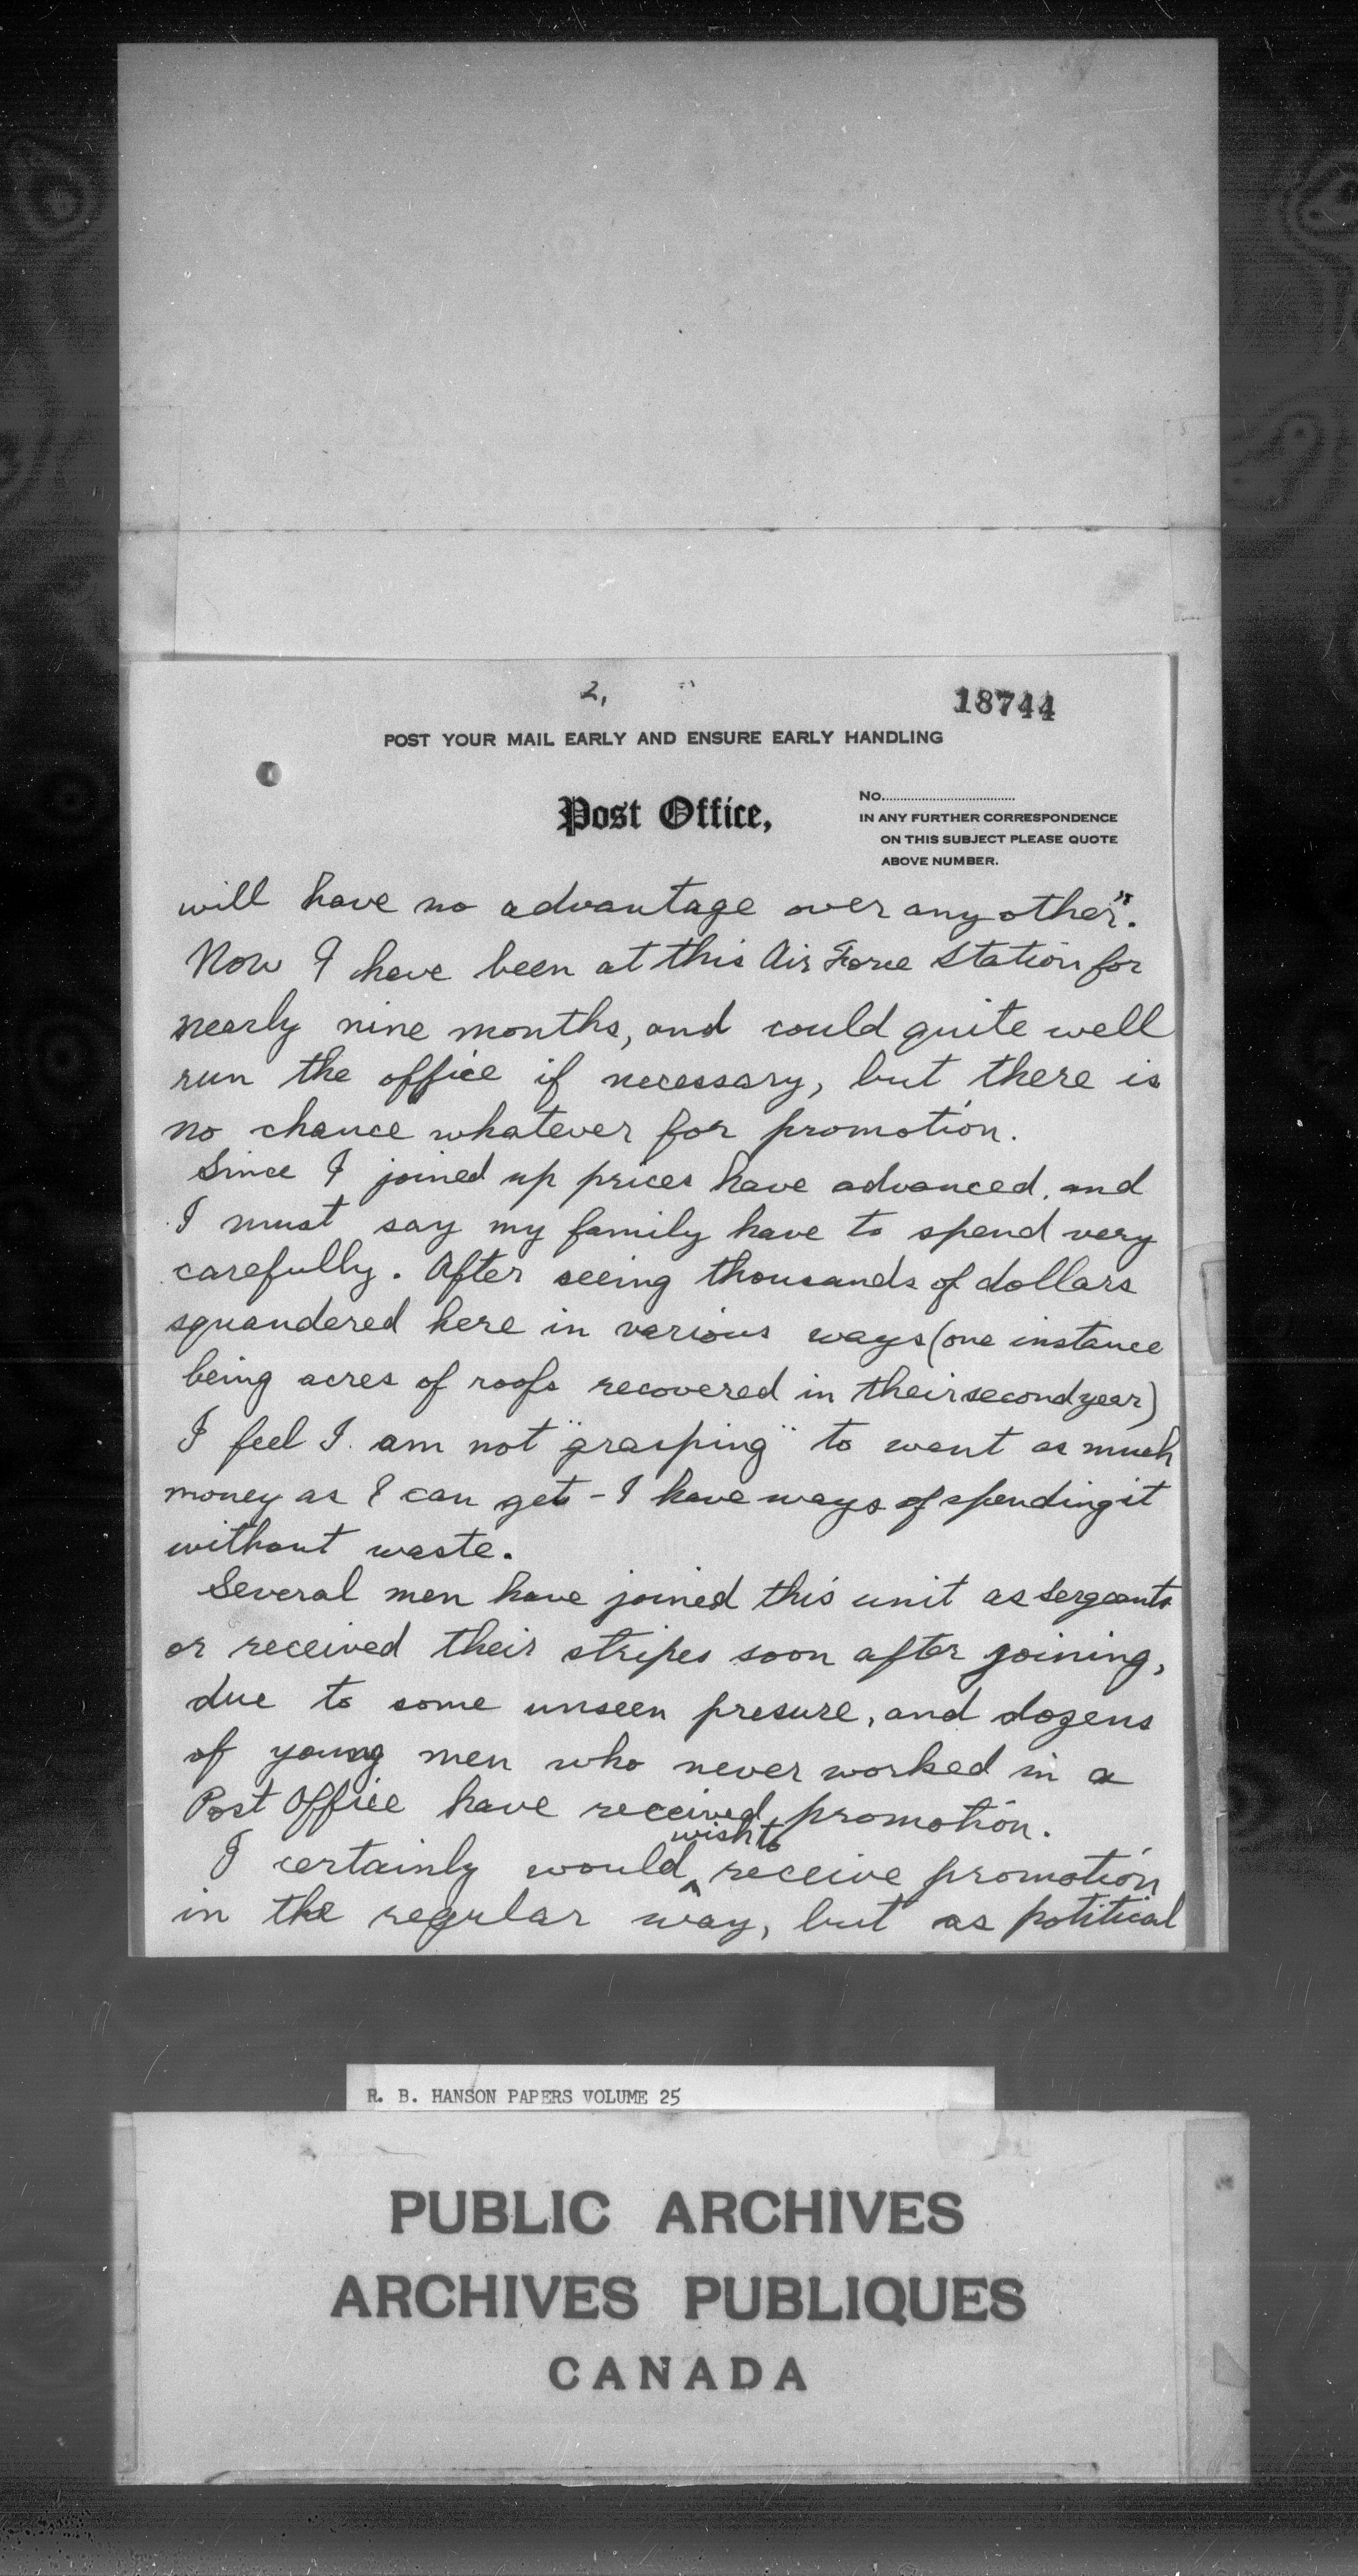 2,
18744
POST YOUR MAIL EARLY AND ENSURE EARLY HANDLING
Post Office,
No....................................
IN ANY FURTHER CORRESPONDENCE
ON THIS SUBJECT PLEASE QUOTE
ABOVE NUMBER.
will have no advantage over any other".
Now I have been at this Air Force Station for
nearly nine months, and could quite well
run the office if necessary, but there is
no chance whatever for promotion.
Since I joined up prices have advanced, and
I must say my family have to spend very
carefully. After seeing thousands of dollars
squandered here in various ways (one instance
being acres of roofs recovered in their second year)
I feel I am not "grasping" to want as much
money as I can get - I have ways of spending it
without waste.
Several men have joined this unit as Sergeants
or received their stripes soon after joining,
due to some unseen presure, and dozens
of young men who never worked in a
Post Office have received promotion.
wish to
I certainly would ^ receive promotion
in the regular way, but as potitical
R. B. HANSON PAPERS VOLUME 25
PUBLIC ARCHIVES
ARCHIVES PUBLIQUES
CANADA